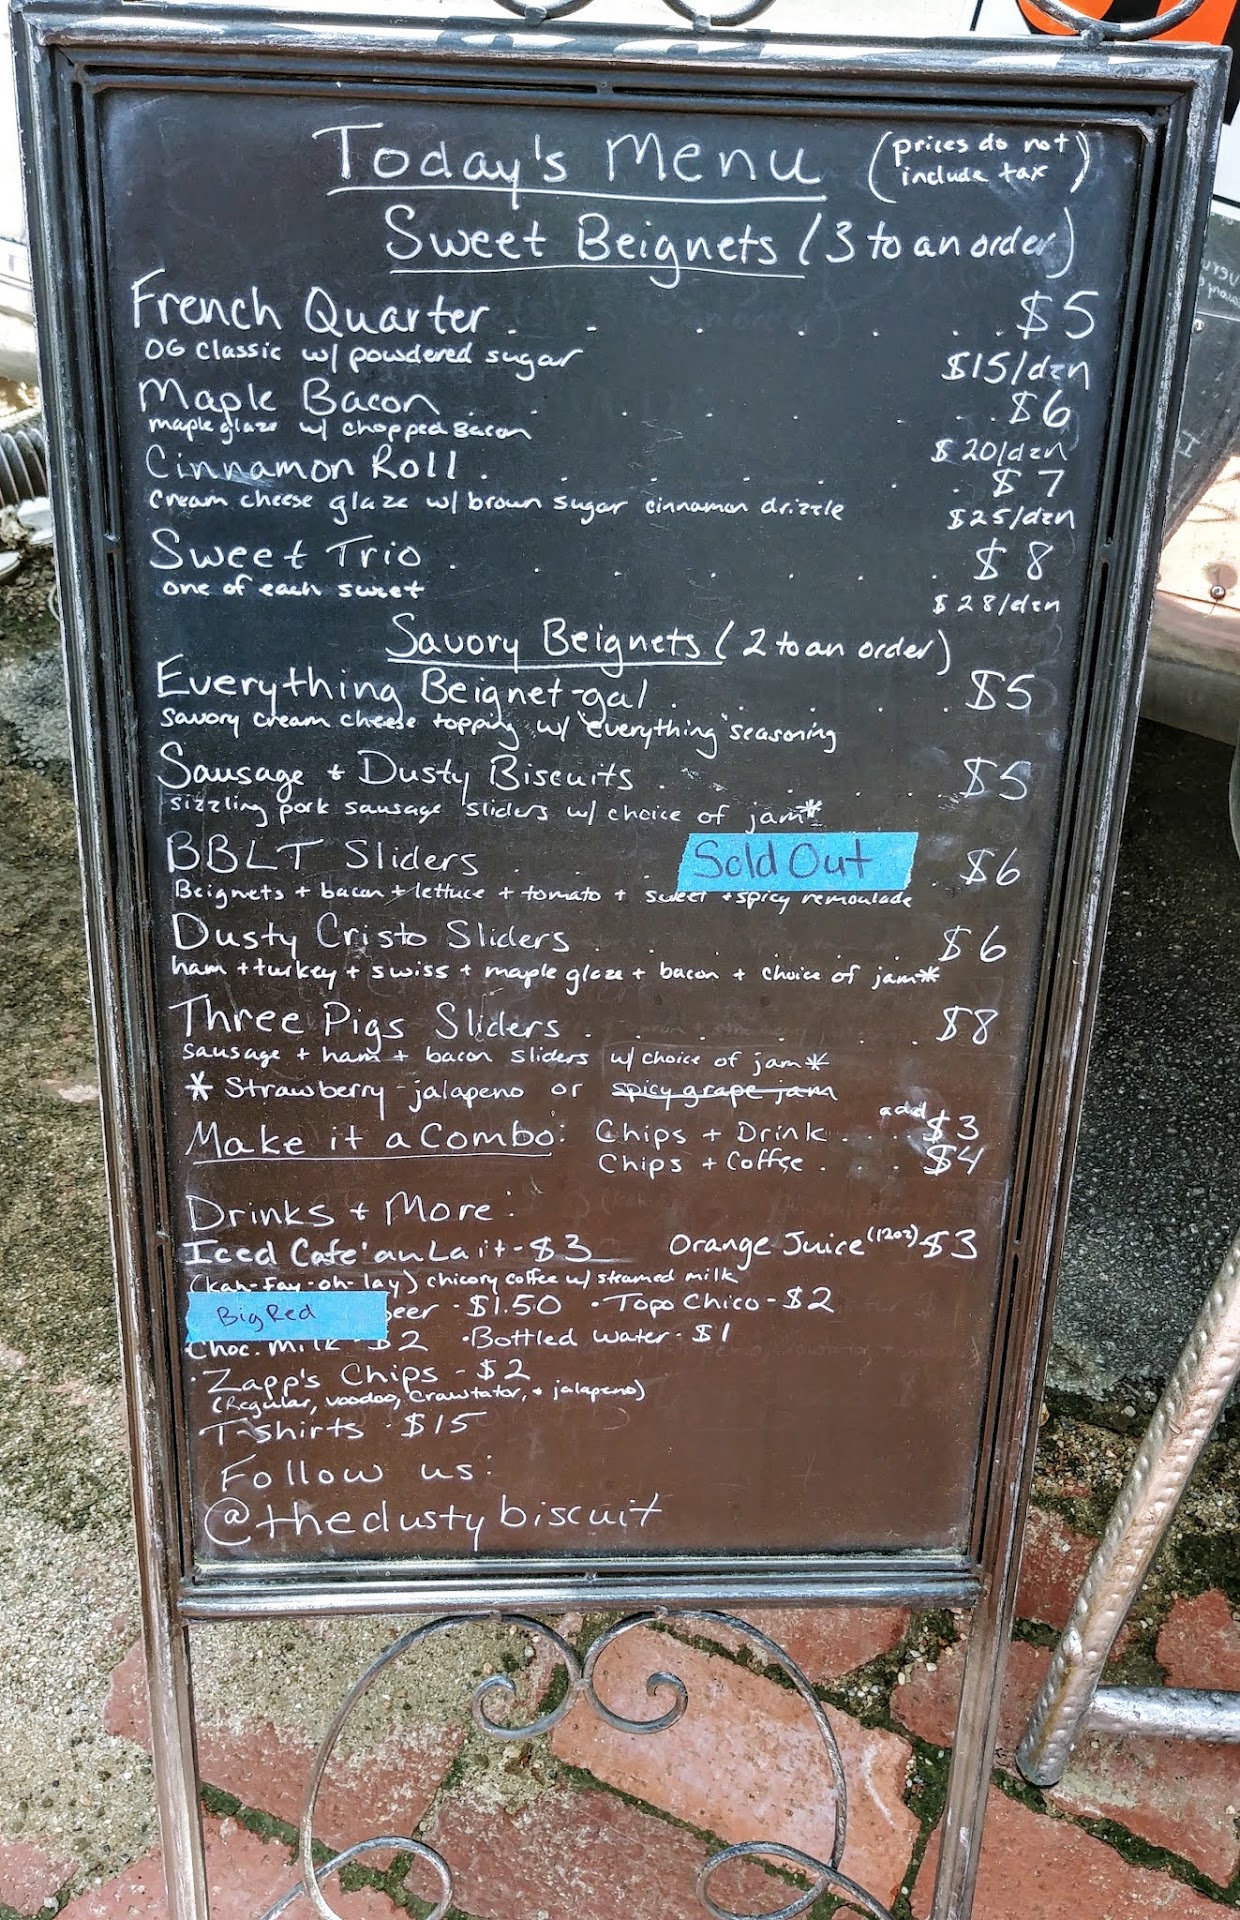 Today's Menu (prices do not include tax)
Sweet Beignets (3 to an order)
French Quarter . . . . . . . $5
OG Classic w/ powdered sugar $15/dzn
Maple Bacon . . . . . . $6
maple glaze w/ chopped Bacon $20/dzn
Cinnamon Roll . . . . . . $7
cream cheese glaze w/ brown sugar cinnamon drizzle $25/dzn
Sweet Trio . . . . . . $8
one of each sweet $28/dzn
Savory Beignets (2 to an order)
Everything Beignet-gal . . . . . $5
savory cream cheese topping w/ "everything" seasoning
Sausage + Dusty Biscuits . . . . $5
sizzling pork sausage sliders w/ choice of jam*
BBLT Sliders . . . Sold Out . $6
Beignets + bacon + lettuce + tomato + sweet + spicy remoulade
Dusty Cristo Sliders . . . . . $6
ham + turkey + swiss + maple glaze + bacon + choice of jam*
Three Pigs Sliders . . . . . $8
sausage + ham + bacon sliders w/ choice of jam*
* Strawberry jalapeno or spicy grape jam
Make it a Combo: Chips + Drink . . . add $3
Chips + Coffee . . . $4
Drinks + More:
Iced Cafe' au Lait - $3 Orange Juice (12oz) $3
(kah-fay-oh-lay) chicory coffee w/ steamed milk
Big Red beer - $1.50 • Topo Chico - $2
Choc. Milk - $2 • Bottled Water - $1
• Zapp's Chips - $2
(Regular, voodoo, Crawtator, + jalapeno)
T-shirts - $15
Follow us:
@thedustybiscuit